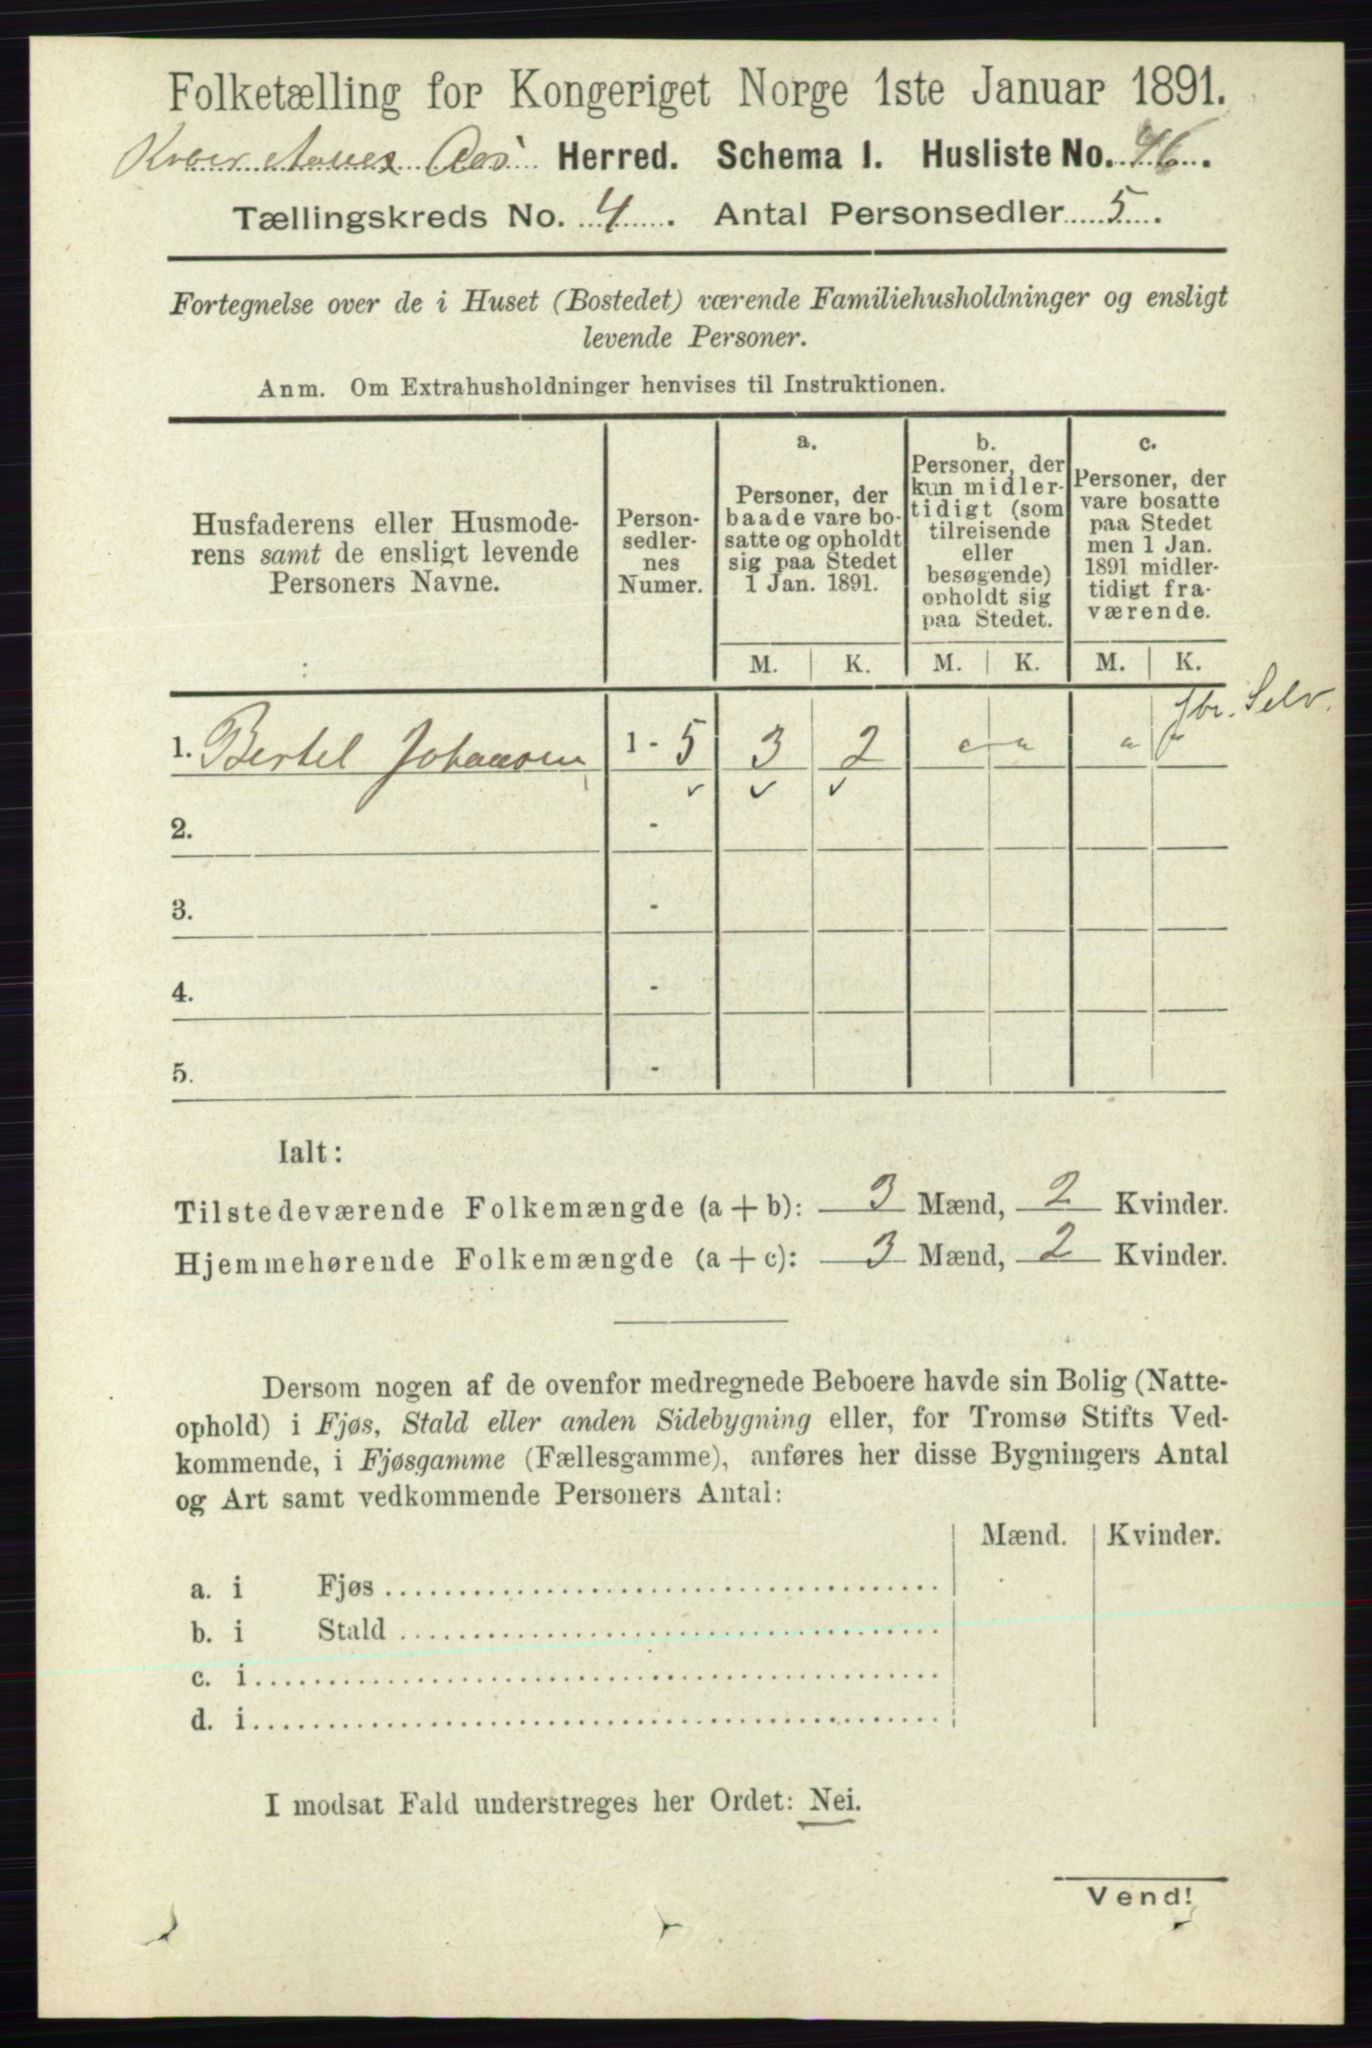 Folketælling for Kongeriget Norge 1ste Januar 1891.
Aas Herred. Schema I. Husliste No. 46.
Tællingskreds No. 4. Antal Personsedler 5.
Fortegnelse over de i Huset (Bostedet) værende Familiehusholdninger og ensligt
levende Personer.
Anm. Om Extrahusholdninger henvises til Instruktionen.
Husfaderens eller Husmode-
rens samt de ensligt levende
Personers Navne.
Person-
sedler-
nes
Numer.
a.
Personer, der
baade vare bo-
satte og opholdt
sig paa Stedet
1 Jan. 1891.
b.
Personer, der
kun midler-
tidigt (som
tilreisende
eller
besøgende)
opholdt sig
paa Stedet.
c.
Personer, der
vare bosatte
paa Stedet
men 1 Jan.
1891 midler-
tidigt fra-
værende.
M. K. M. K. M. K.
fbr. Selv.
1. Bertel Johansen 1 - 5 3 2
2. -
3. -
4. -
5. -
Ialt:
Tilstedeværende Folkemængde (a + b): 3 Mænd, 2 Kvinder.
Hjemmehørende Folkemængde (a + c): 3 Mænd, 2 Kvinder.
Dersom nogen af de ovenfor medregnede Beboere havde sin Bolig (Natte-
ophold) i Fjøs, Stald eller anden Sidebygning eller, for Tromsø Stifts Ved-
kommende, i Fjøsgamme (Fællesgamme), anføres her disse Bygningers Antal
og Art samt vedkommende Personers Antal:
Mænd. Kvinder.
a. i Fjøs
b. i Stald
c. i
d. i
I modsat Fald understreges her Ordet: Nei.
Vend!